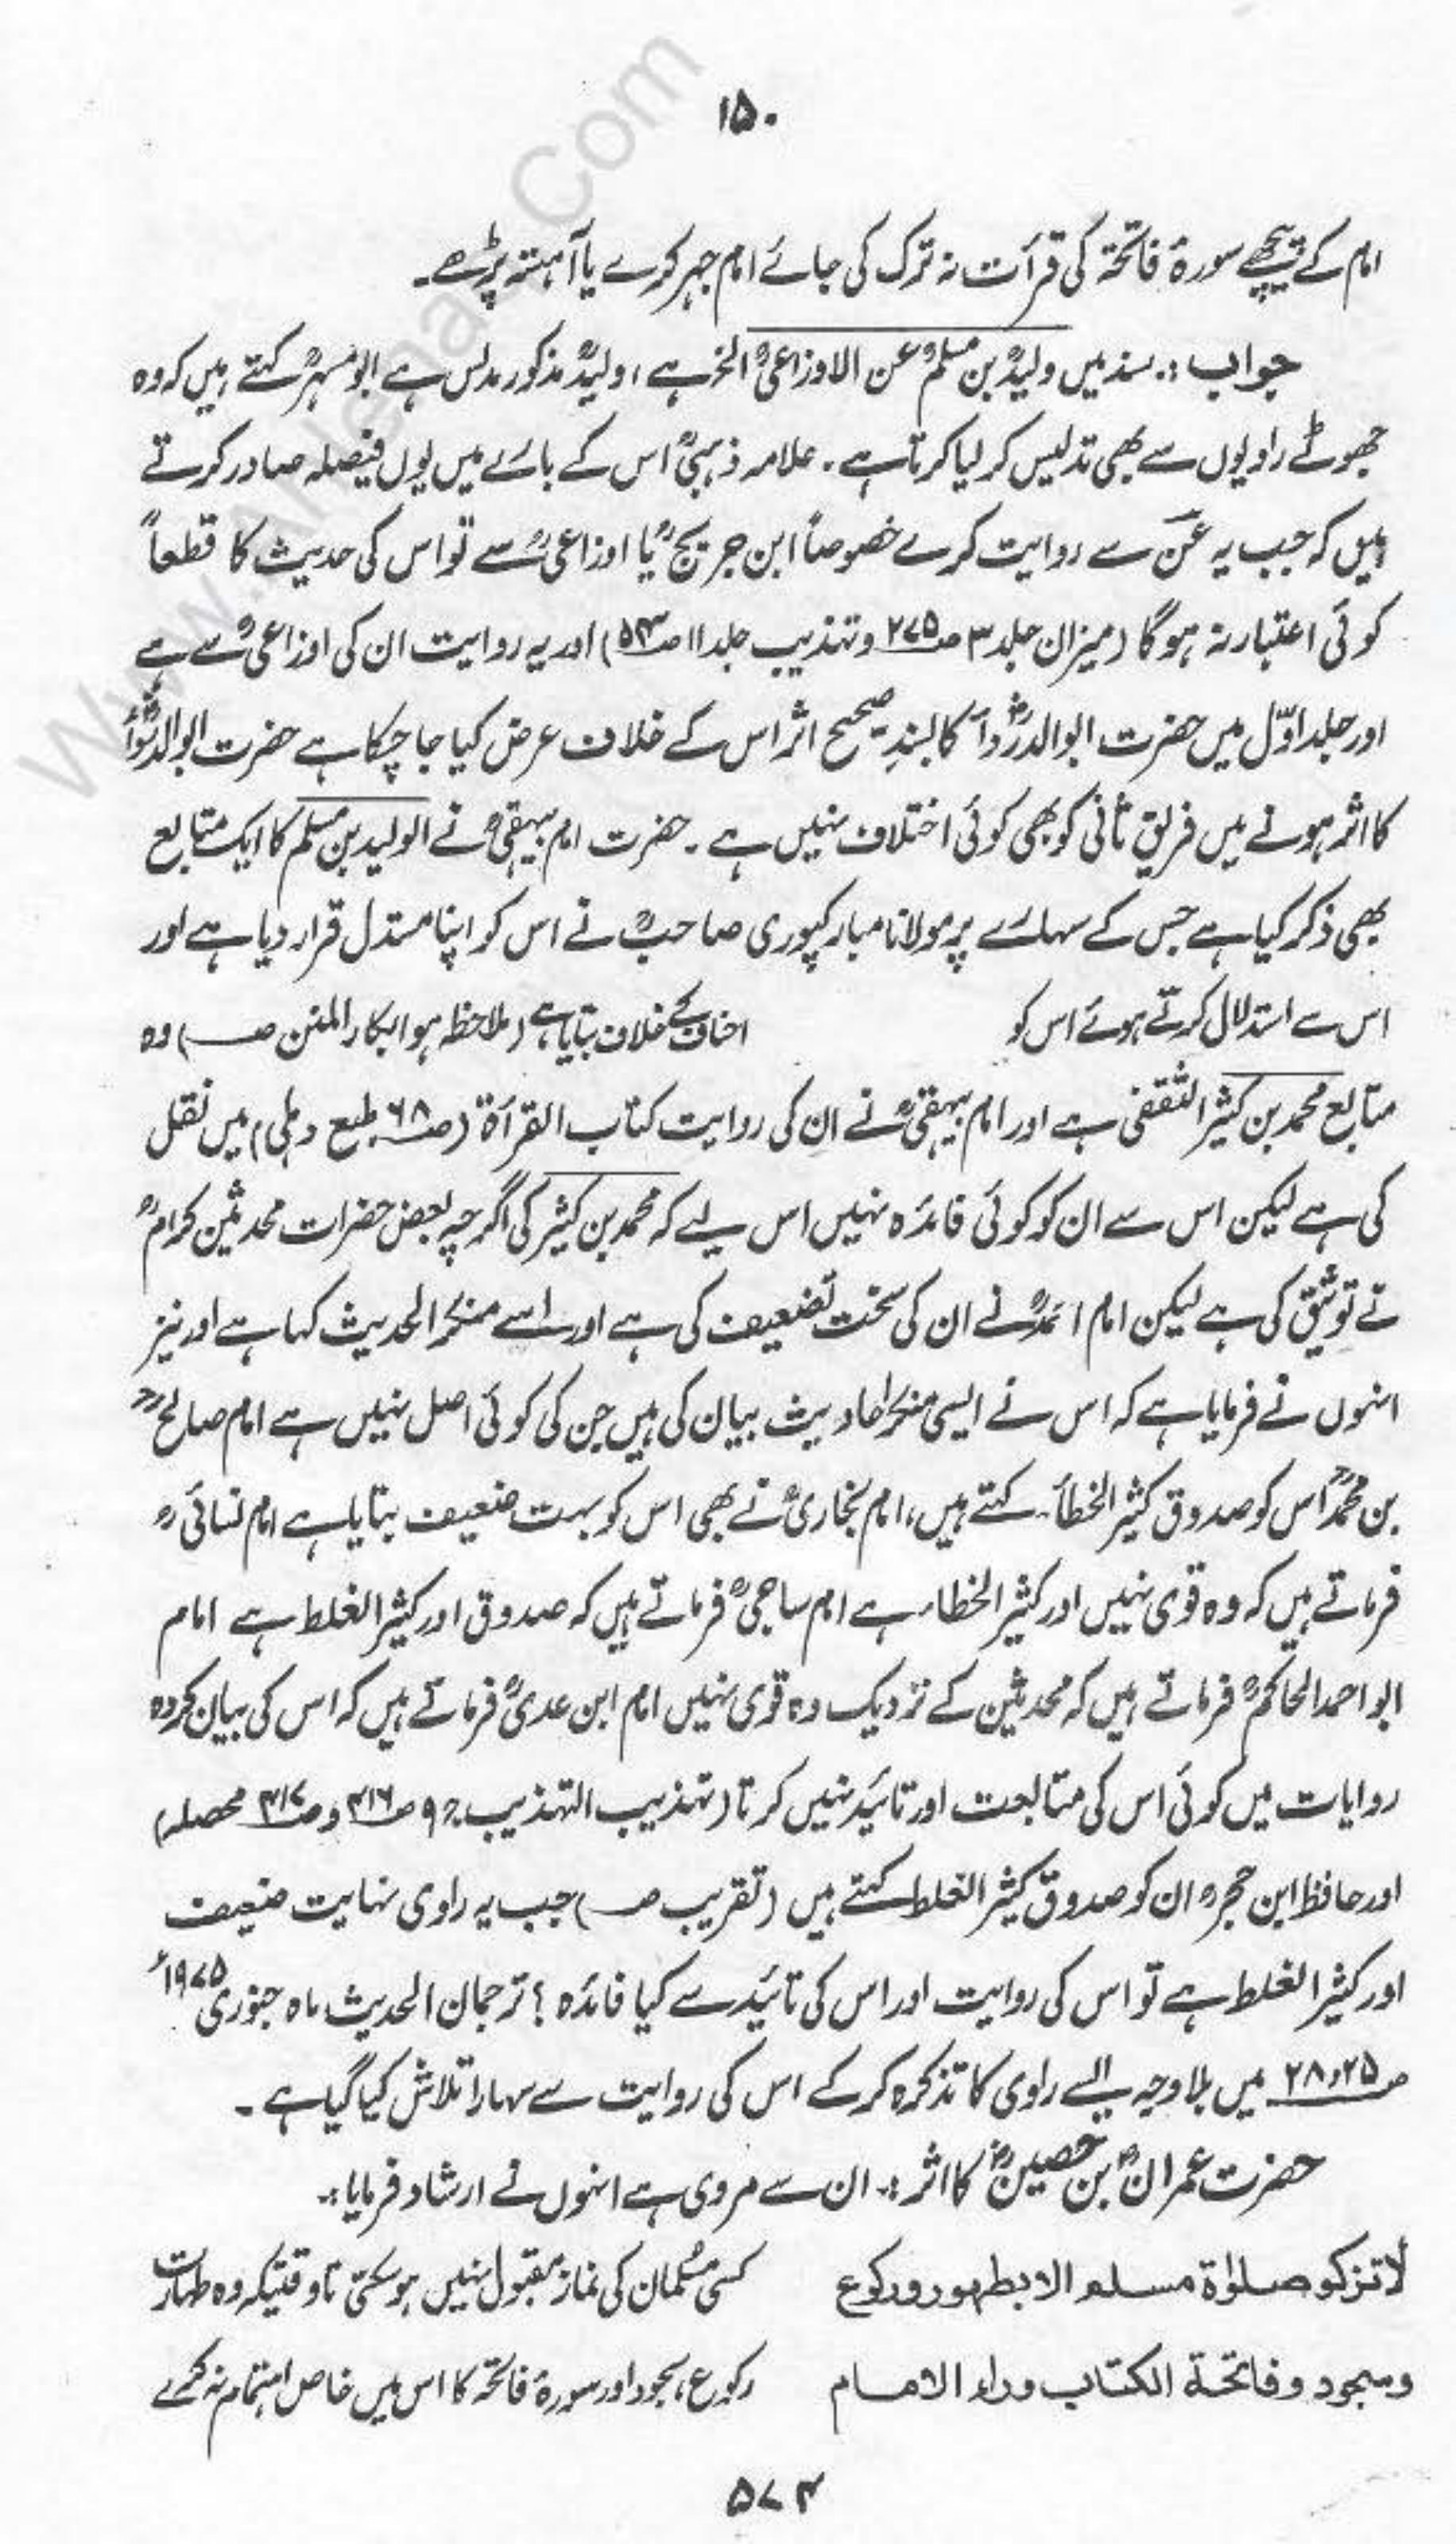 ۱۵۰
امام کے پیچھے سورۂ فاتحۃ کی قرآت نہ ترک کی جائے امام جہر کرے یا آہستہ پڑھے۔
جواب :۔ سند میں ولیدؒ بن مسلمؒ عن الاوزاعیؒ الخ ہے، ولیدؒ مذکور مدلس ہے ابو مسہرؒ کہتے ہیں کہ وہ
جھوٹے راویوں سے بھی تدلیس کر لیا کرتا ہے۔ علامہ ذہبیؒ اس کے بارے میں یوں فیصلہ صادر کرتے
ہیں کہ جب یہ عَنْ سے روایت کرے خصوصاً ابن جریجؒ یا اوزاعیؒ سے تو اس کی حدیث کا قطعاً
کوئی اعتبار نہ ہوگا (میزان جلد ۳ صـ۲۷۵ و تہذیب جلد ۱۱ صـ) اور یہ روایت ان کی اوزاعیؒ سے ہے
اور جلد اوّل میں حضرت ابوالدرداؓ کا بسندِ صحیح اثر اس کے خلاف عرض کیا جا چکا ہے حضرت ابوالدرداؓ
کا اثر ہونے میں فریق ثانی کو بھی کوئی اختلاف نہیں ہے۔ حضرت امام بیہقیؒ نے الولید بن مسلم کا ایک متابع
بھی ذکر کیا ہے جس کے سہارے پر مولانا مبارکپوری صاحبؒ نے اس کو اپنا مستدل قرار دیا ہے اور
اس سے استدلال کرتے ہوئے اس کو احناف کے خلاف بتایا ہے (ملاحظہ ہو ابکار المنن صـ) وہ
متابع محمد بن کثیر الثقفی ہے اور امام بیہقیؒ نے ان کی روایت کتاب القرآۃ (صـ۶۸ طبع دہلی) میں نقل
کی ہے لیکن اس سے ان کو کوئی فائدہ نہیں اس لیے کہ محمد بن کثیر کی اگرچہ بعض حضرات محدثین کرامؒ
نے توثیق کی ہے لیکن امام احمدؒ نے ان کی سخت تضعیف کی ہے اور اسے منکر الحدیث کہا ہے اور نیز
انہوں نے فرمایا ہے کہ اس نے ایسی منکر احادیث بیان کی ہیں جن کی کوئی اصل نہیں ہے امام صالحؒ
بن محمدؒ اس کو صدوق کثیر الخطأ کہتے ہیں، امام بخاریؒ نے بھی اس کو بہت ضعیف بتایا ہے امام نسائیؒ
فرماتے ہیں کہ وہ قوی نہیں اور کثیر الخطاء ہے امام ساجیؒ فرماتے ہیں کہ صدوق اور کثیر الغلط ہے امام
ابو احمد الحاکمؒ فرماتے ہیں کہ محدثین کے نزدیک وہ قوی نہیں امام ابن عدیؒ فرماتے ہیں کہ اس کی بیان کردہ
روایات میں کوئی اس کی متابعت اور تائید نہیں کرتا (تہذیب التہذیب جـ۹ صـ۴۱۶ و صـ۴۱۷ محصلہ)
اور حافظ ابن حجرؒ ان کو صدوق کثیر الغلط کہتے ہیں (تقریب صـ) جب یہ راوی نہایت ضعیف
اور کثیر الغلط ہے تو اس کی روایت اور اس کی تائید سے کیا فائدہ؟ ترجمان الحدیث ماہ جنوری ۱۹۷۵ء
صـ۲۵، ۲۸ میں بلاوجہ ایسے راوی کا تذکرہ کر کے اس کی روایت سے سہارا تلاش کیا گیا ہے۔
حضرت عمرانؓ بن حصینؓ کا اثر :۔ ان سے مروی ہے انہوں نے ارشاد فرمایا :۔
لا تزکو صلوٰۃ مسلم الا بطہور ورکوع کسی مسلمان کی نماز مقبول نہیں ہو سکتی تاوقتیکہ وہ طہارت
وسجود وفاتحۃ الکتاب وراء الامام رکوع، سجود اور سورۂ فاتحہ کا اس میں خاص اہتمام نہ کرے
۵۷۴